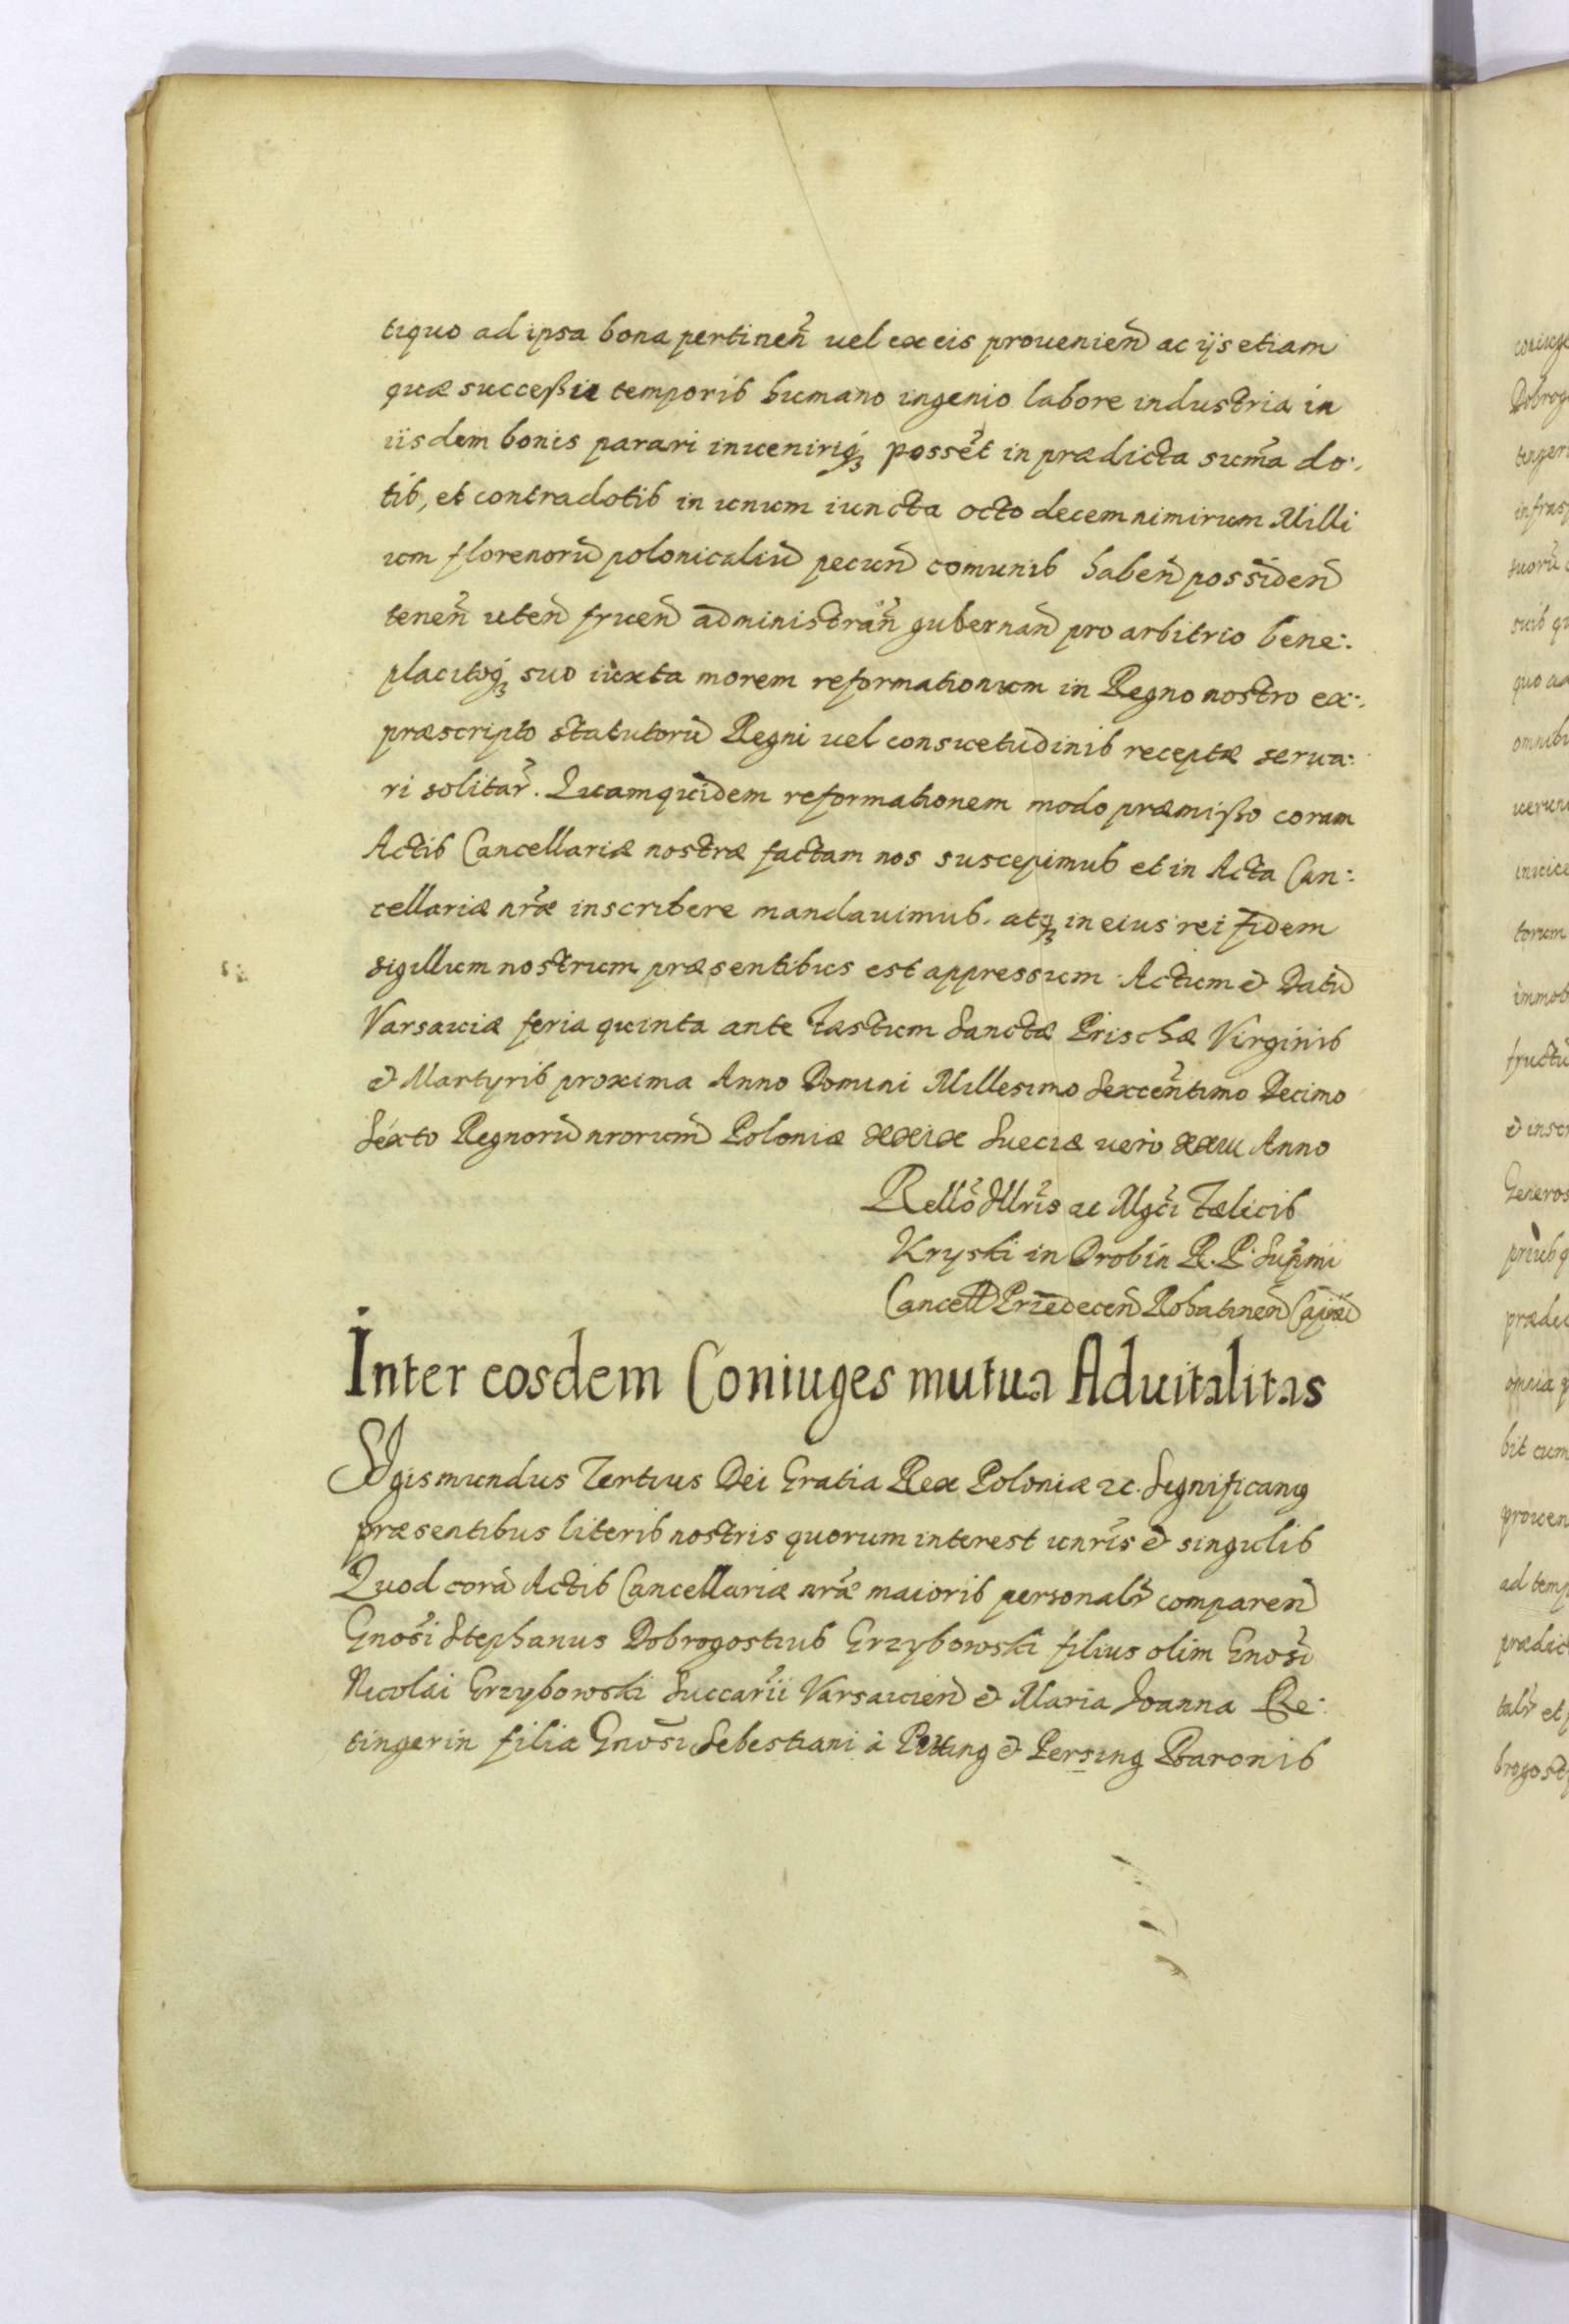 tiquo ad ipsa bona pertineñ uel ex eis prouenieñ ac ijs etiam
quæ succeßu temporis humano ingenio labore industria in
iisdem bonis parari inueniriq3 possẽt in prædicta sum̃a do:
tis, et contradotis in unum iuncta octodecem nimirum Milli
um florenorũ polonicaliũ pecuñ comunis habeñ possideñ
teneñ uteñ frueñ administrañ gubernañ pro arbitrio bene:
placitoq3 suo iuxta morem reformationum in Regno nostro ex:
præscripto statutorũ Regni uel consuetudinis receptæ serua:
ri solitar̃. Quamquidem reformationem modo præmißo coram
Actis Cancellariæ nostræ factam nos suscepimus et in Acta Can:
cellariæ nr̃æ inscribere mandauimus. atq3 in eius rei fidem
sigillum nostrum præsentibus est appressum. Actum & Datũ
Varsauiæ feria quinta ante Fæstum Sanctæ Prischæ Virginis
& Martyris proxima Anno Domini Millesimo Sexceñtimo Decimo
Séxto Regnorũ nrorum̃ Poloniæ xxix Sueciæ uero xxiii Anno
Rellõ Illrĩs ac Mgcĩ Fælicis
Kryski in Drobin R. P. Sup̃mi
Cancell Prżedeceñ Rohatineñ Capnei
Inter eosdem Coniuges mutua Aduitalitas
Sigismundus Tertius Dei Gratia Rex Poloniæ 2c. Significamus
præsentibus literis nostris quorum interest unrĩs & singulis
Quod corã Actis Cancellariæ nrã̃e maioris personalr̃ compareñ
Gnosĩ Stephanus Dobrogostius Grzybowski filius olim Gnosĩ
Nicolai Grzybowski Succarĩi Varsauieñ & Maria Joanna Re:
tingerin filia Gnosĩ Sebestiani à Pitting & Persing Baronis